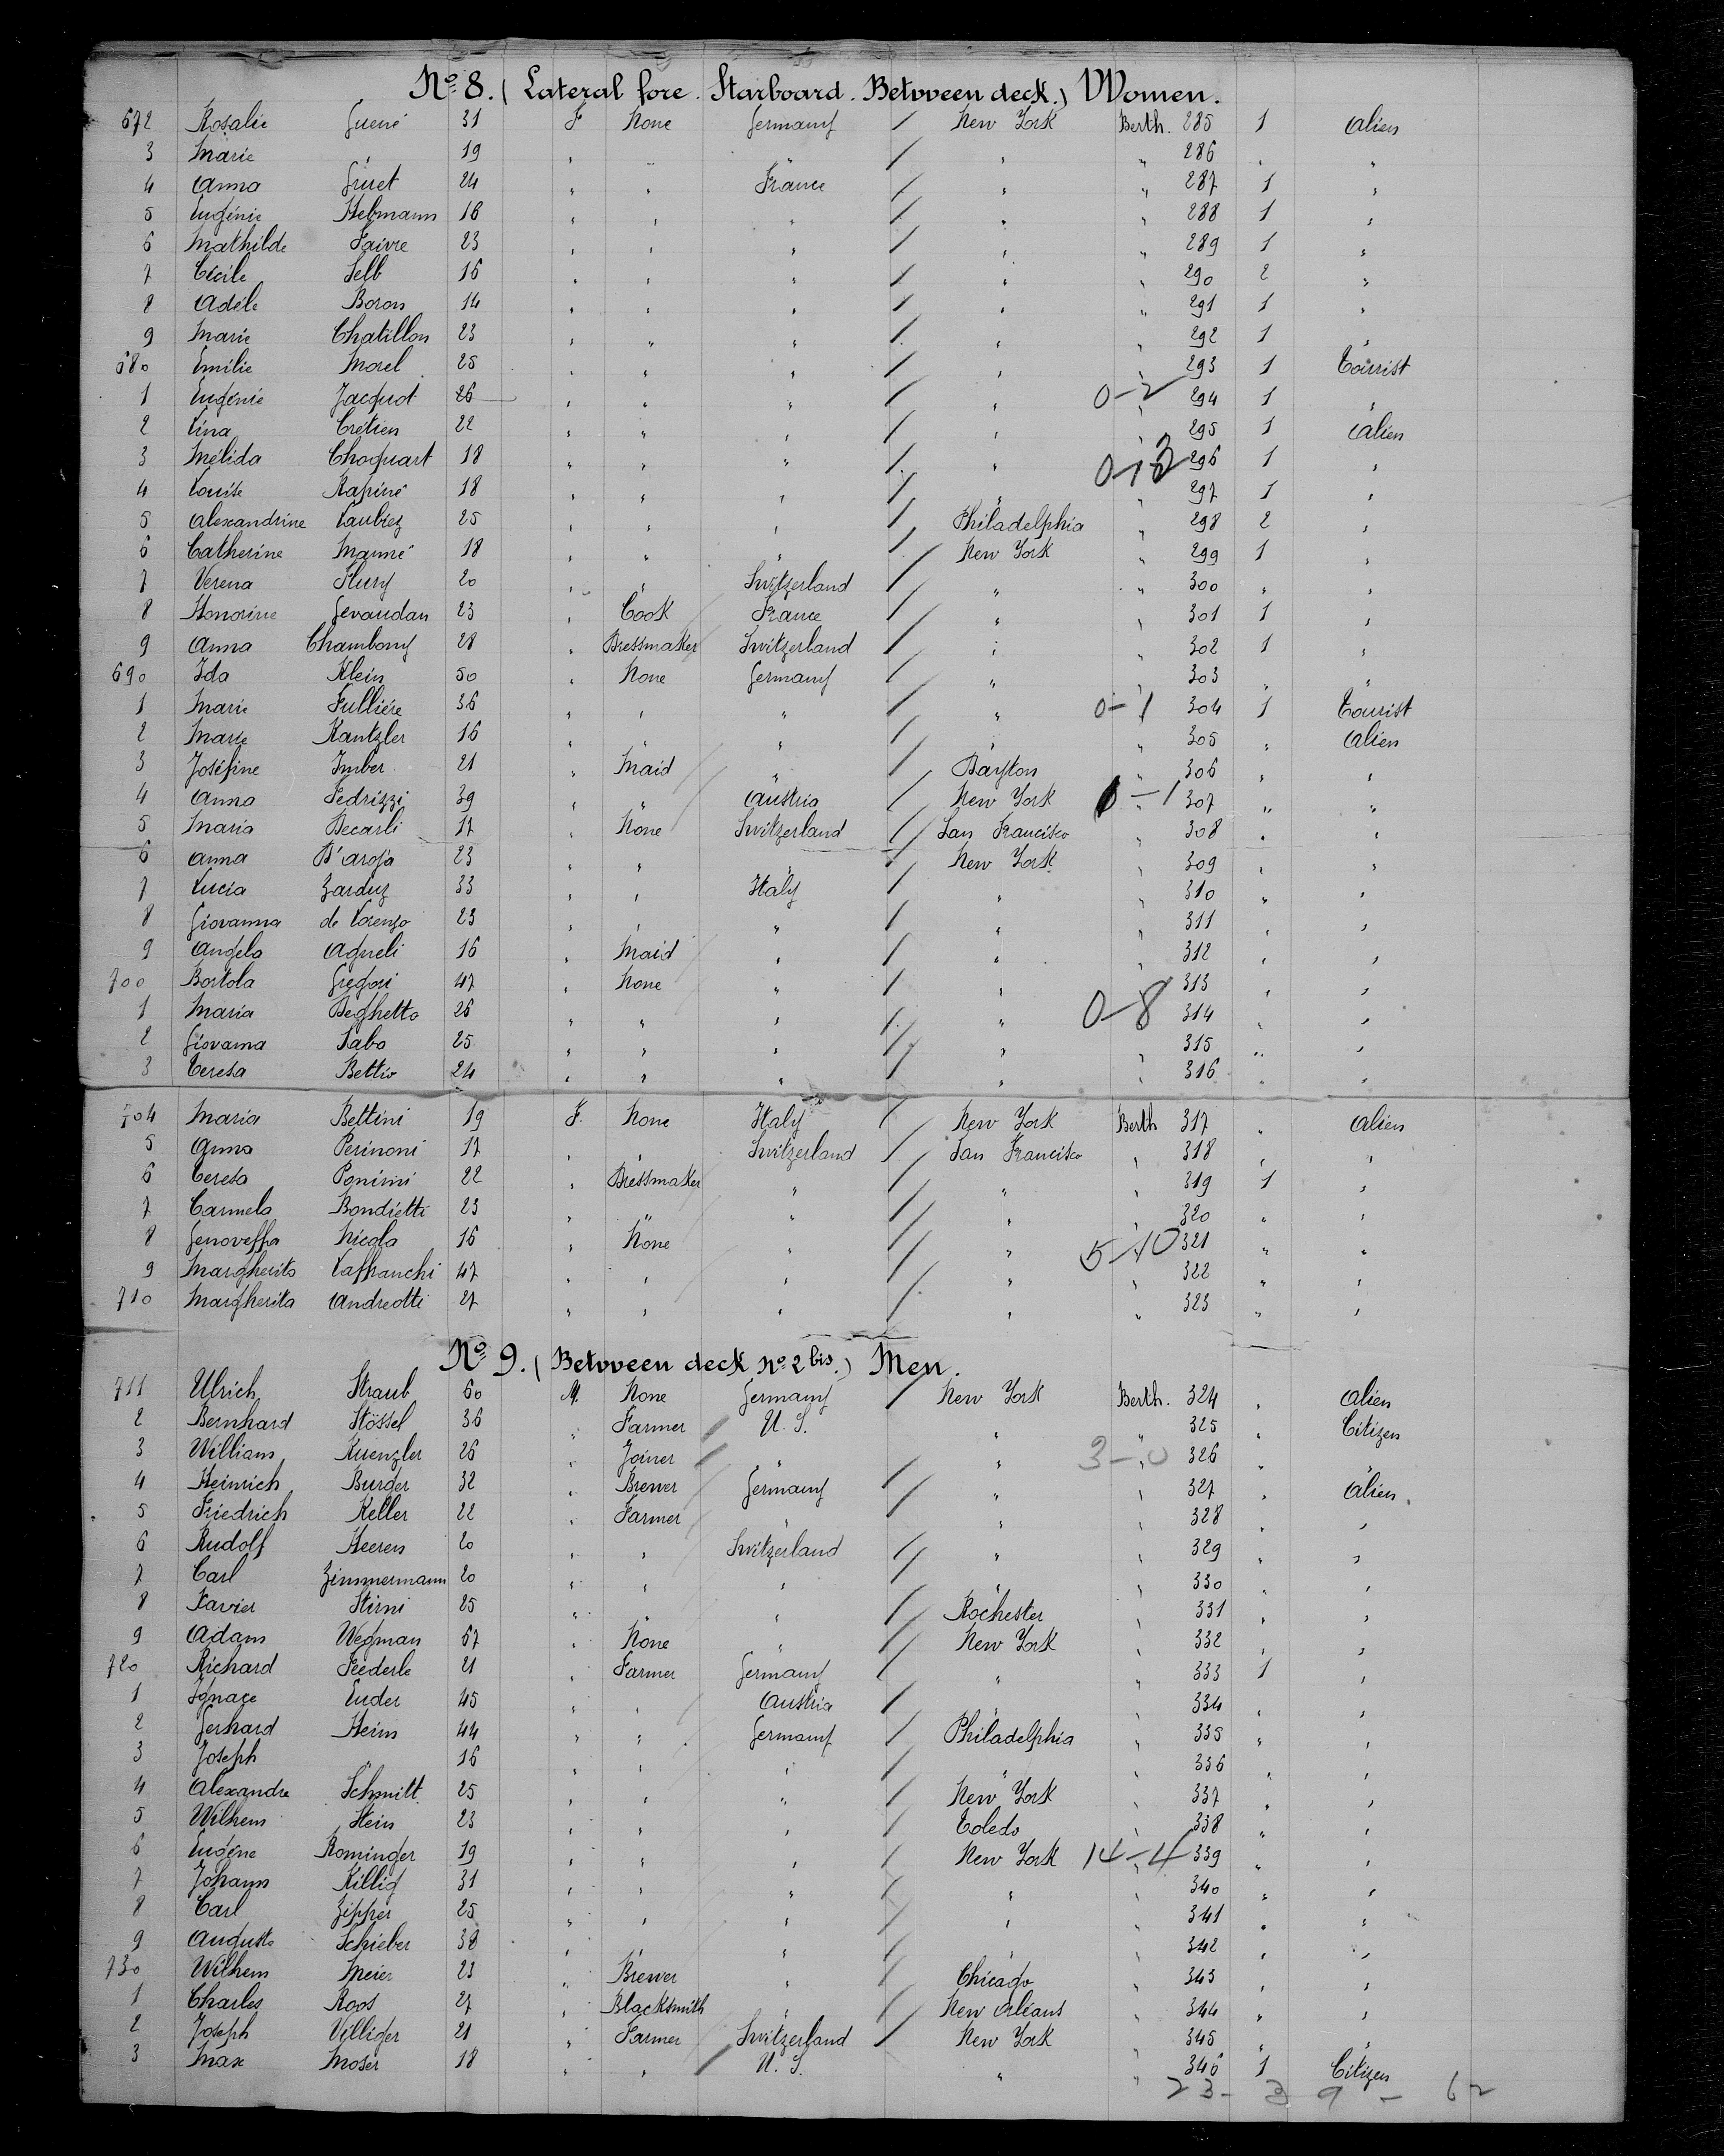 No 8. ( Lateral fore. Starboard. Between deck.) Women.
672 Rosalie Guené 31 F None Germany / New York Berth. 285 1 Alien
3 Marie " 19 " " " / " " 286 " "
4 Anna Guret 24 " " France / " " 287 1 "
5 Eugénie Helmann 16 " " " / " " 288 1 "
6 Mathilde Faivre 23 " " " / " " 289 1 "
7 Cécile Selb 16 " " " / " " 290 2 "
8 Adéle Boron 14 " " " / " " 291 1 "
9 Marie Chatillon 23 " " " / " " 292 1 "
680 Emilie Morel 25 " " " / " " 293 1 Tourist
1 Eugénie Jacquot 26 " " " / " 0-2 " 294 1 "
2 Lina Crétien 22 " " " / " " 295 1 Alien
3 Mélida Choquart 18 " " " / " 296 1 "
4 Louise Rapiné 18 " " " / " " 297 1 "
5 Alexandrine Laubiez 25 " " " / Philadelphia " 298 2 "
6 Catherine Manné 18 " " " / New York " 299 1 "
7 Verena Flury 20 " " Switzerland / " " 300 " "
8 Honorine Gevaudan 23 " Cook France / " " 301 1 "
9 Anna Chambony 28 " Dressmaker Switzerland / " " 302 1 "
690 Ida Klein 50 " None Germany / " " 303 " "
1 Marie Fulliére 36 " " " / " 0-1 304 1 Tourist
2 Marie Kantzler 16 " " " / " " 305 " Alien
3 Joséfine Imber 21 " Maid " / Dayton " 306 " "
4 Anna Pedrizzi 39 " " Austria / New York " 307 " "
5 Maria Decarli 17 " None Switzerland / San Francisco " 308 " "
6 Anna D'aroja 23 " " " / New York " 309 " "
7 Lucia Zarduz 33 " " Italy / " " 310 " "
8 Giovanna de Lorenzo 23 " " " / " " 311 " "
9 Angela Agneli 16 " Maid " / " " 312 " "
700 Bortola Gregori 47 " None " / " " 313 " "
1 Maria Beghetto 26 " " " / " 0-8 314 " "
2 Giovanna Sabo 25 " " " / " " 315 " "
3 Teresa Bettio 24 " " " / " " 316 " "
704 Maria Bettini 19 F. None Italy / New York Berth 317 " Alien
5 Anna Perinoni 17 " " Switzerland / San Francisco " 318 " "
6 Teresa Ponini 22 " Dressmaker " / " " 319 1 "
7 Carmela Bondietti 23 " " " / " " 320 " "
8 Genoveffa Nicola 16 " None " / " 5-10 321 " "
9 Margherita Laffranchi 47 " " " / " " 322 " "
710 Margherita Andreotti 27 " " " / " " 323 " "
No 9. ( Between deck No 2 bis.) Men.
711 Ulrich Straub 60 M. None Germany / New York Berth. 324 " Alien
2 Bernhard Stössel 36 " Farmer U. S. " " 325 " Citizen
3 William Kuenzler 26 " Joiner " " 3-0 326 " "
4 Heinrich Burger 32 " Brewer Germany / " " 327 " Alien
5 Friedrich Keller 22 " Farmer " / " " 328 " "
6 Rudolf Heeren 20 " " Switzerland / " " 329 " "
7 Carl Zimmermann 20 " " " / " " 330 " "
8 Xavier Stirni 25 " " " / Rochester " 331 " "
9 Adam Wegman 67 " None " / New York " 332 " "
720 Richard Federle 21 " Farmer Germany / " " 333 1 "
1 Ignace Euder 45 " " Austria / " " 334 " "
2 Gerhard Heim 44 " " Germany / Philadelphia " 335 " "
3 Joseph " 16 " " " / " " 336 " "
4 Alexandre Schmitt 25 " " " / New York " 337 " "
5 Wilhem Stein 23 " " " / Toledo " 338 " "
6 Eugéne Rominger 19 " " " / New York 14-4 339 " "
7 Johann Killig 31 " " " / " " 340 " "
8 Carl Zipper 25 " " " / " " 341 " "
9 Auguste Schieber 38 " " " / " " 342 " "
730 Wilhem Meier 23 " Brewer " / Chicago " 343 " "
1 Charles Roos 27 " Blacksmith " / New Orleans " 344 " "
2 Joseph Villiger 21 " Farmer Switzerland / New York " 345 " "
3 Max Moser 18 " " / U. S. " " 346 1 Citizen
23- 39 - 62